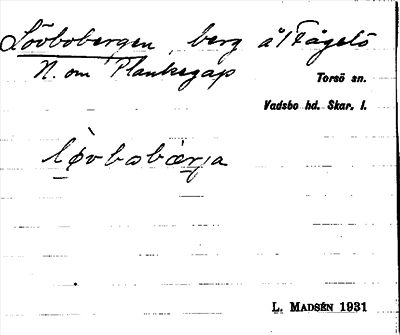 Lövbobergen, berg å Fågelö
N. om Plankegap
Torsö sn.
Vadsbo hd. Skar. l.
lø̀vbobærja
L. MADSÉN 1931